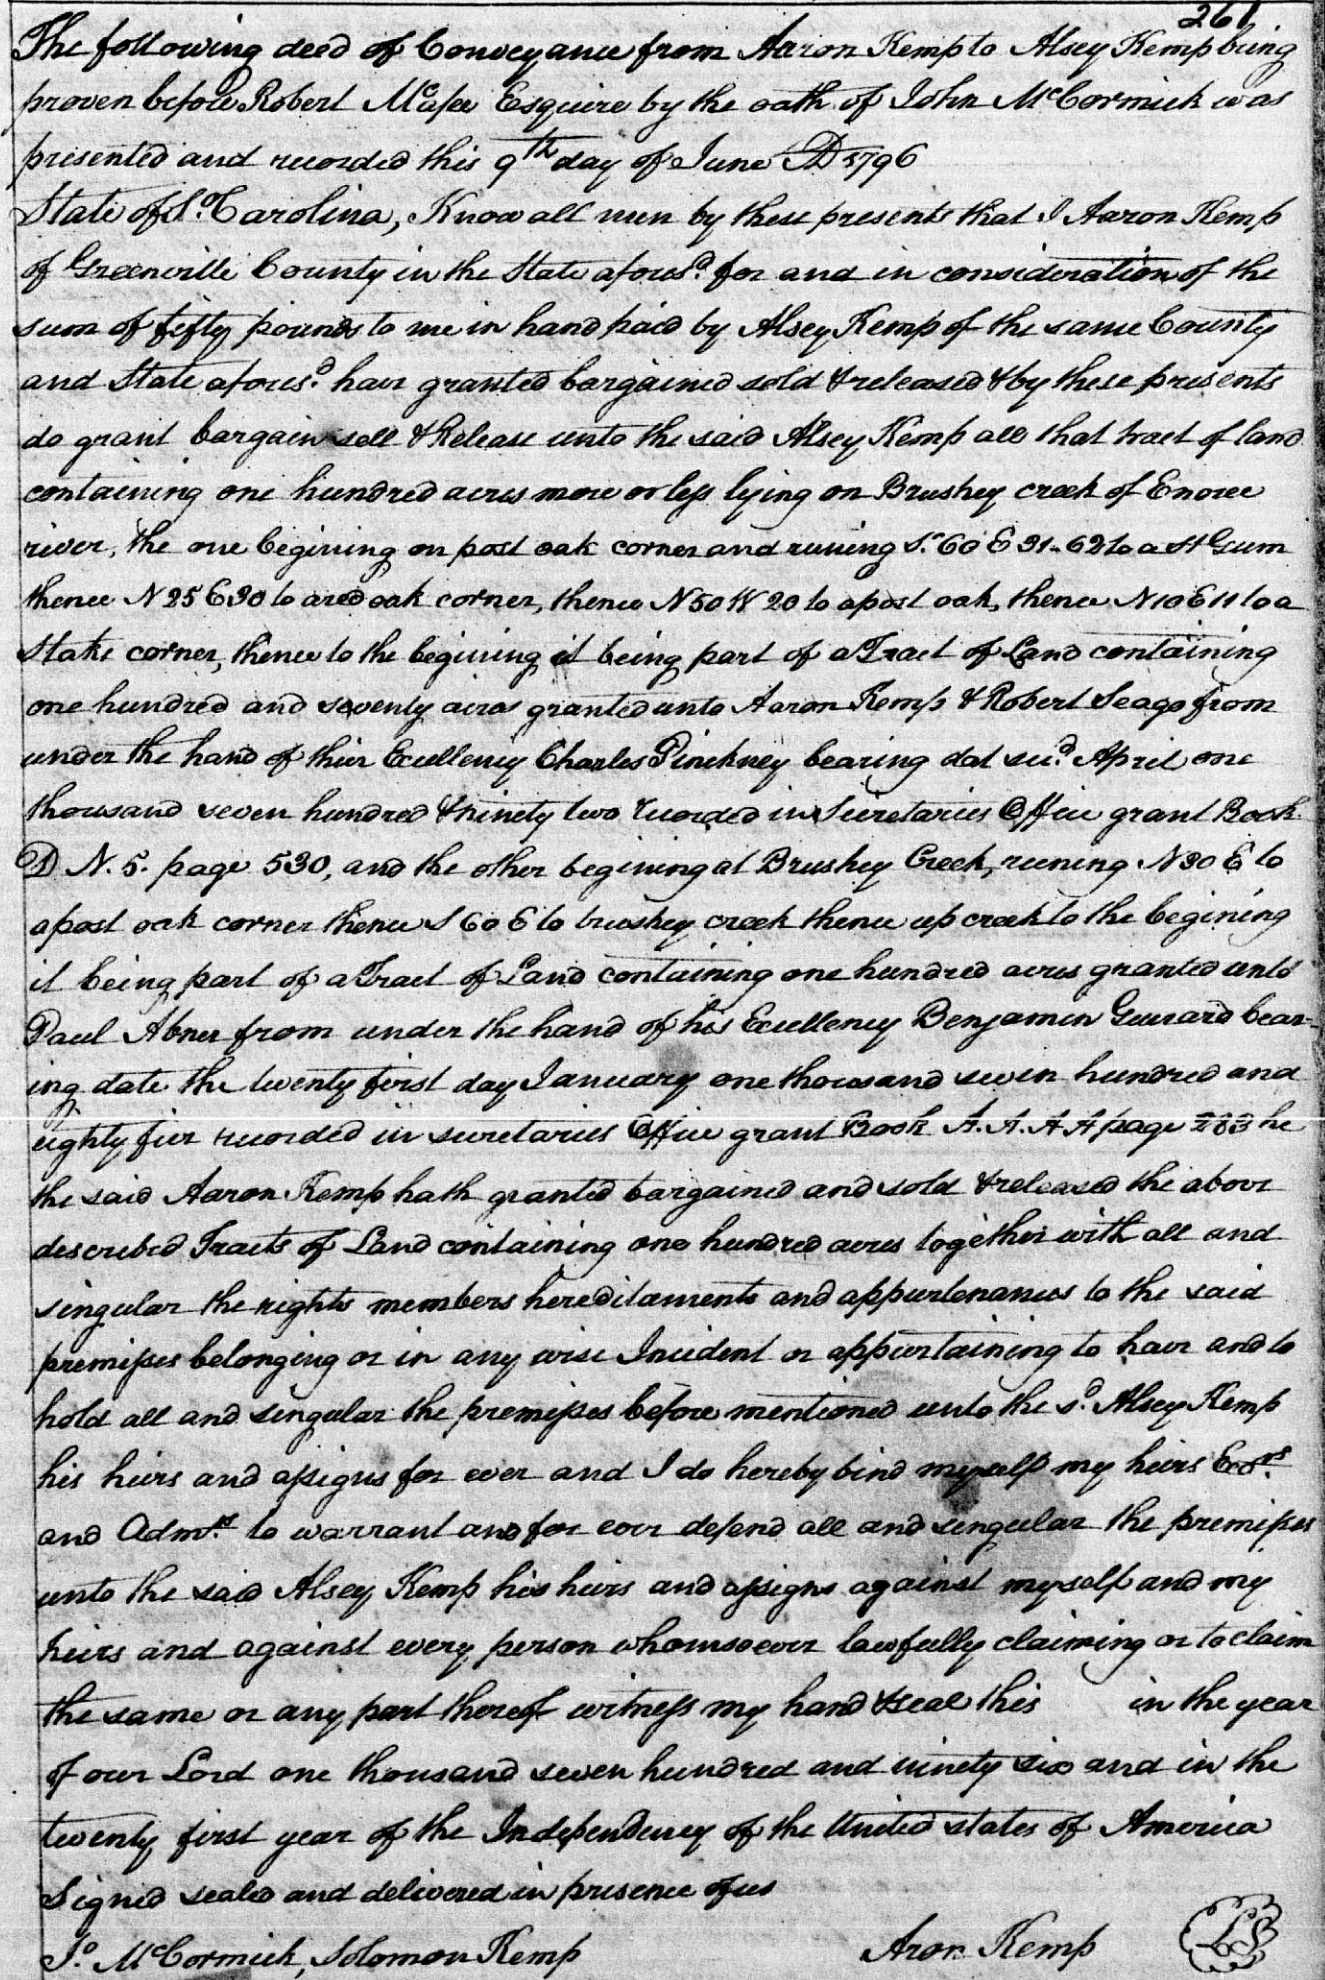 261
The following deed of Conveyance from Aaron Kemp to Alsey Kemp being
proven before Robert McAfee Esquire by the oath of John McCormick was
presented and recorded this 9th day of June AD 1796
State of So. Carolina, Know all men by these presents that I Aaron Kemp
of Greenville County in the State aforesd. for and in consideration of the
sum of fifty pounds to me in hand paid by Alsey Kemp of the same County
and State aforesd. have granted bargained sold & released & by these presents
do grant bargain sell & Release unto the said Alsey Kemp all that tract of land
containing one hundred acres more or less lying on Brushey creek of Enoree
river, the one begining on post oak corner and runing S. 60 E 31-62 to a St Gum
thence N 25 E 30 to a red oak corner, thence N 50 W 20 to a post oak, thence N 10 E 11 to a
Stake corner, thence to the begining it being part of a Tract of Land containing
one hundred and seventy acres granted unto Aaron Kemp & Robert Seago from
under the hand of thier Excellency Charles Pinckney bearing dat secd. April one
thousand seven hundred & ninety two recorded in Secretaries Office grant Book
D N. 5. page 530, and the other begining at Brushey Creek, runing N 30 E to
a post oak corner thence S 60 E to brushey creek thence up creek to the begining
it being part of a Tract of Land containing one hundred acres granted unto
Paul Abner from under the hand of his Excellency Benjamin Guerard bear-
ing date the twenty first day January one thousand seven hundred and
eighty five recorded in secretaries Office grant Book A. A. A A page 283 he
the said Aaron Kemp hath granted bargained and sold & released the above
described Tracts of Land containing one hundred acres together with all and
singular the rights members hereditaments and appurtenances to the said
premises belonging or in any wise Incident or appertaining to have and to
hold all and singular the premises before mentioned unto the sd. Alsey Kemp
his heirs and assigns for ever and I do hereby bind myself my heirs Exors.
and Admrs. to warrant and for ever defend all and singular the premises
unto the said Alsey Kemp his heirs and assigns against myself and my
heirs and against every person whomsoever lawfully claiming or to claim
the same or any part thereof witness my hand & seal this in the year
of our Lord one thousand seven hundred and ninety six and in the
twenty first year of the Independency of the United states of America
Signed sealed and delivered in presence of us
Jo. McCormick, Solomon Kemp Aron Kemp LS